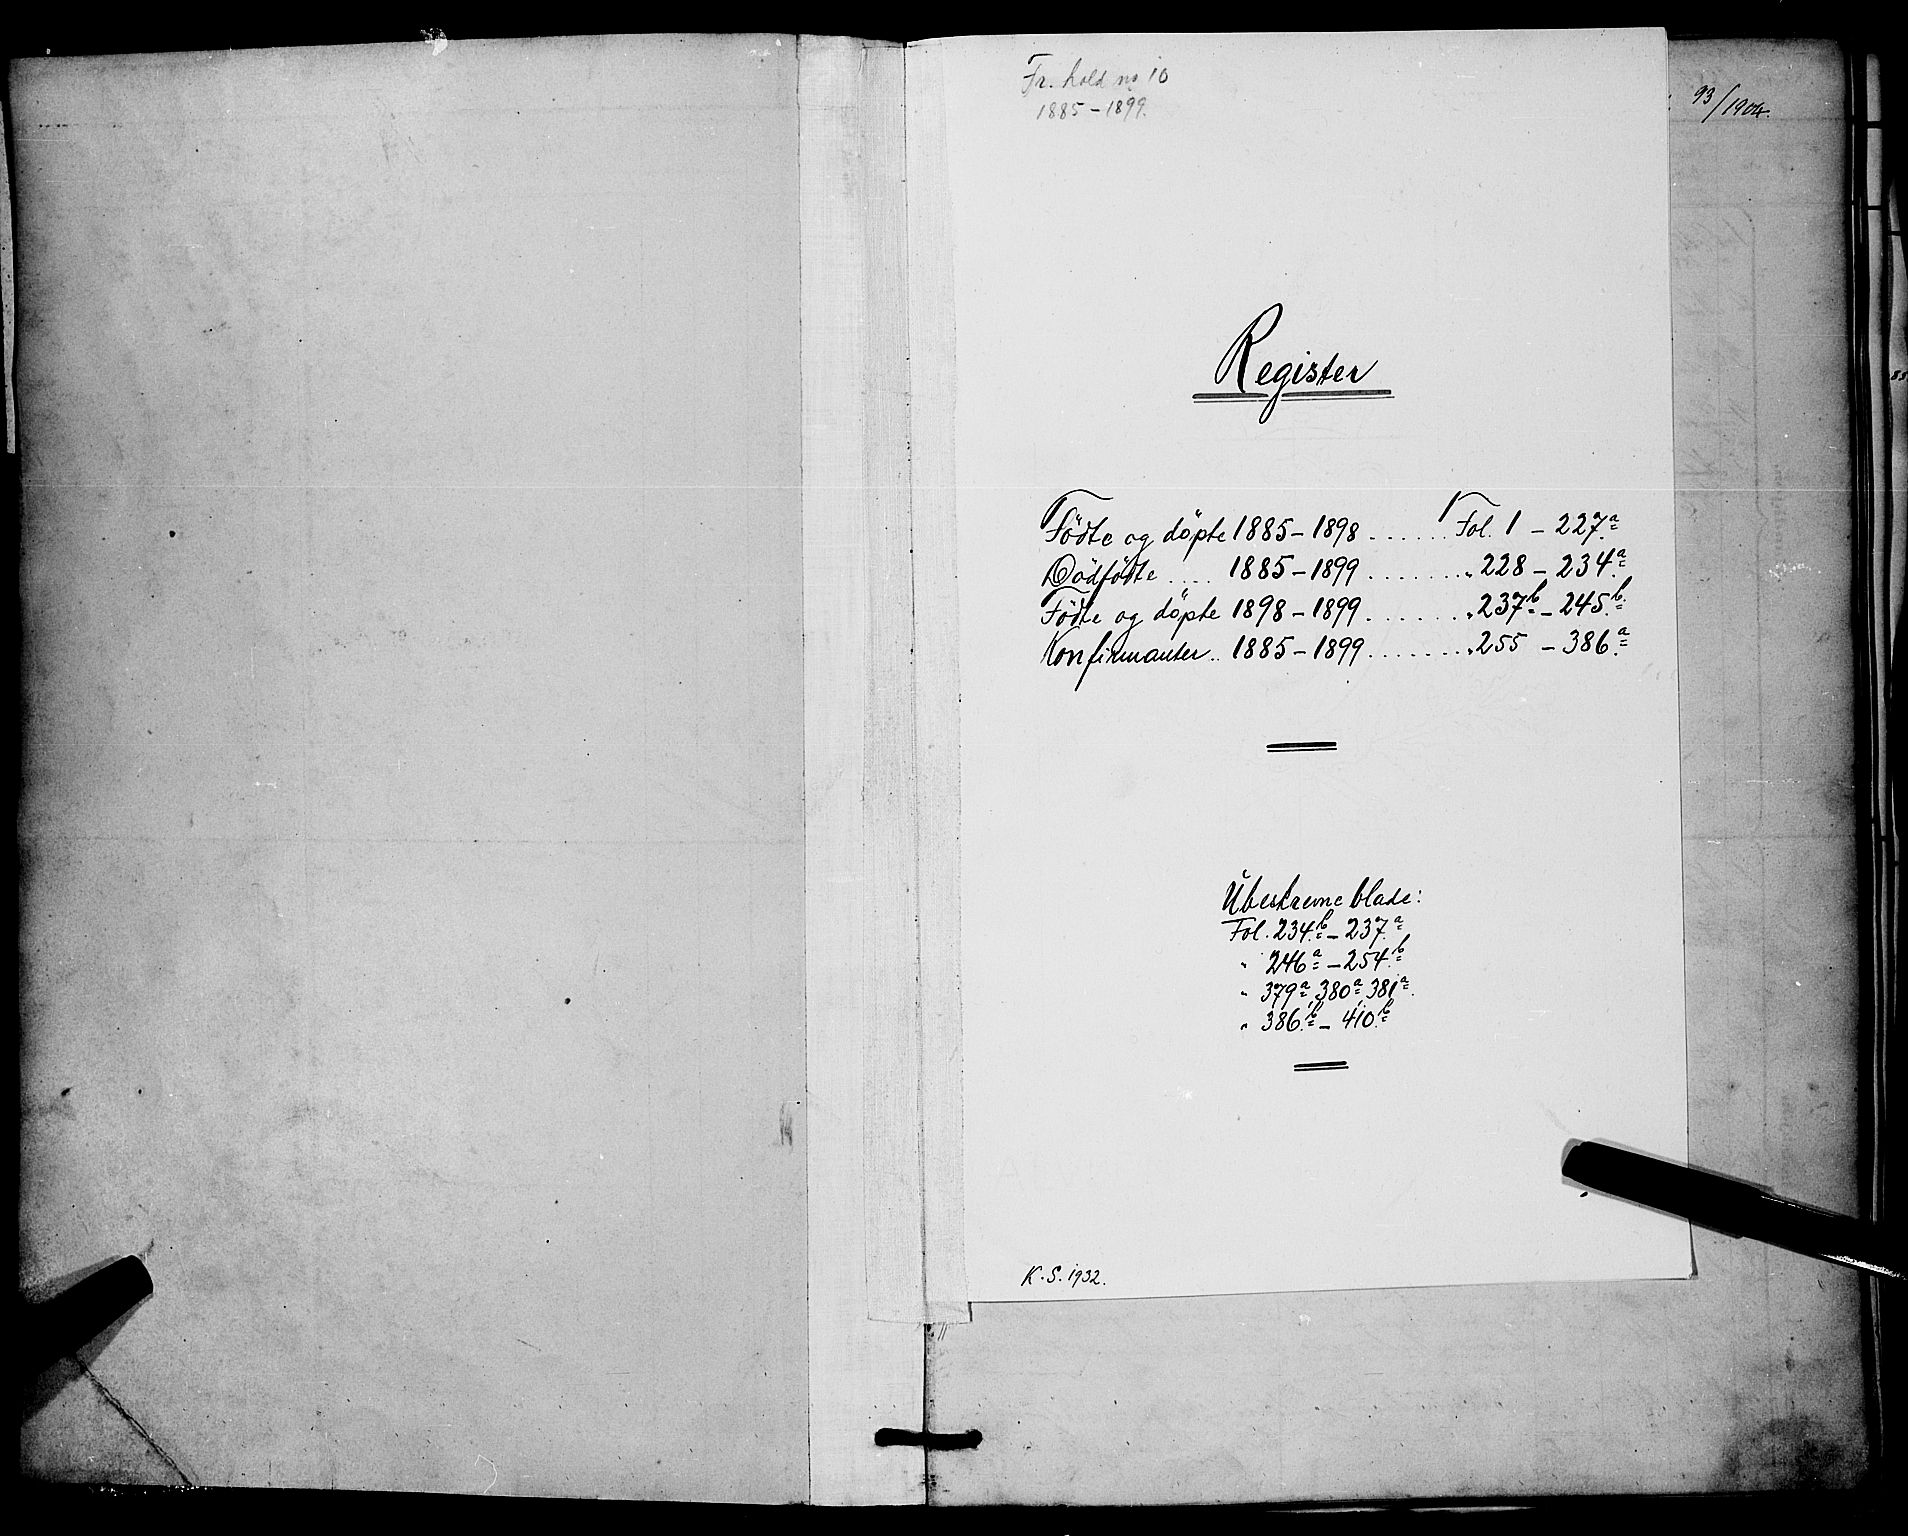 Fr. hald no 10
1885 – 1899.
93/1904.
Register
Födte og döpte 1885 – 1898 ...... Fol. 1 – 227.a
Dödfödte .... 1885 – 1899 ....... „ 228 – 234.a
Födte og döpte 1898 – 1899 ....... „ 237b. – 245.b
Konfirmanter .. 1885 – 1899 ....... „ 255 – 386.a
Ubeskrevne blade:
Fol. 234.b – 237.a
„ 246a – 254.b
„ 379a, 380a, 381a.
„ 386.b – 410.b
K. S. 1932.